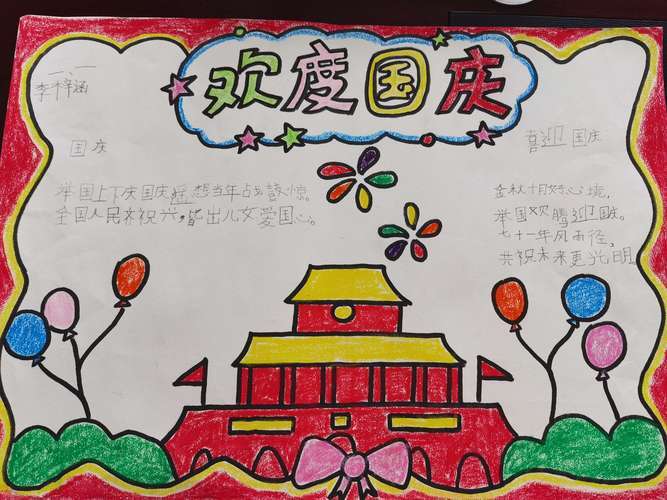 欢度国庆
一、一
李梓涵
国庆
举国上下庆国庆,想当年占鼓惊。
全国人民齐祝兴,皆出儿女爱国心。
喜迎国庆
金秋十月好心境,
举国欢腾迎国庆。
七十一年风雨径,
共祝未来更光明